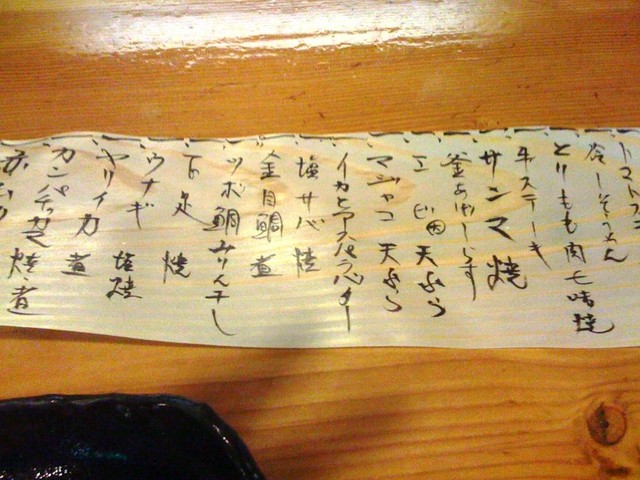 冷しそうめん
とりもも肉七味焼
牛ステーキ
サンマ焼
釜あげしらす
エビ 天ぷら
マジャコ 天ぷら
イカとアスパラバター
塩サバ焼
金目鯛煮
ツボ鯛みりん干し
下足 焼
ウナギ 塩焼
ヤリイカ 煮
カンパチカマ 焼 煮